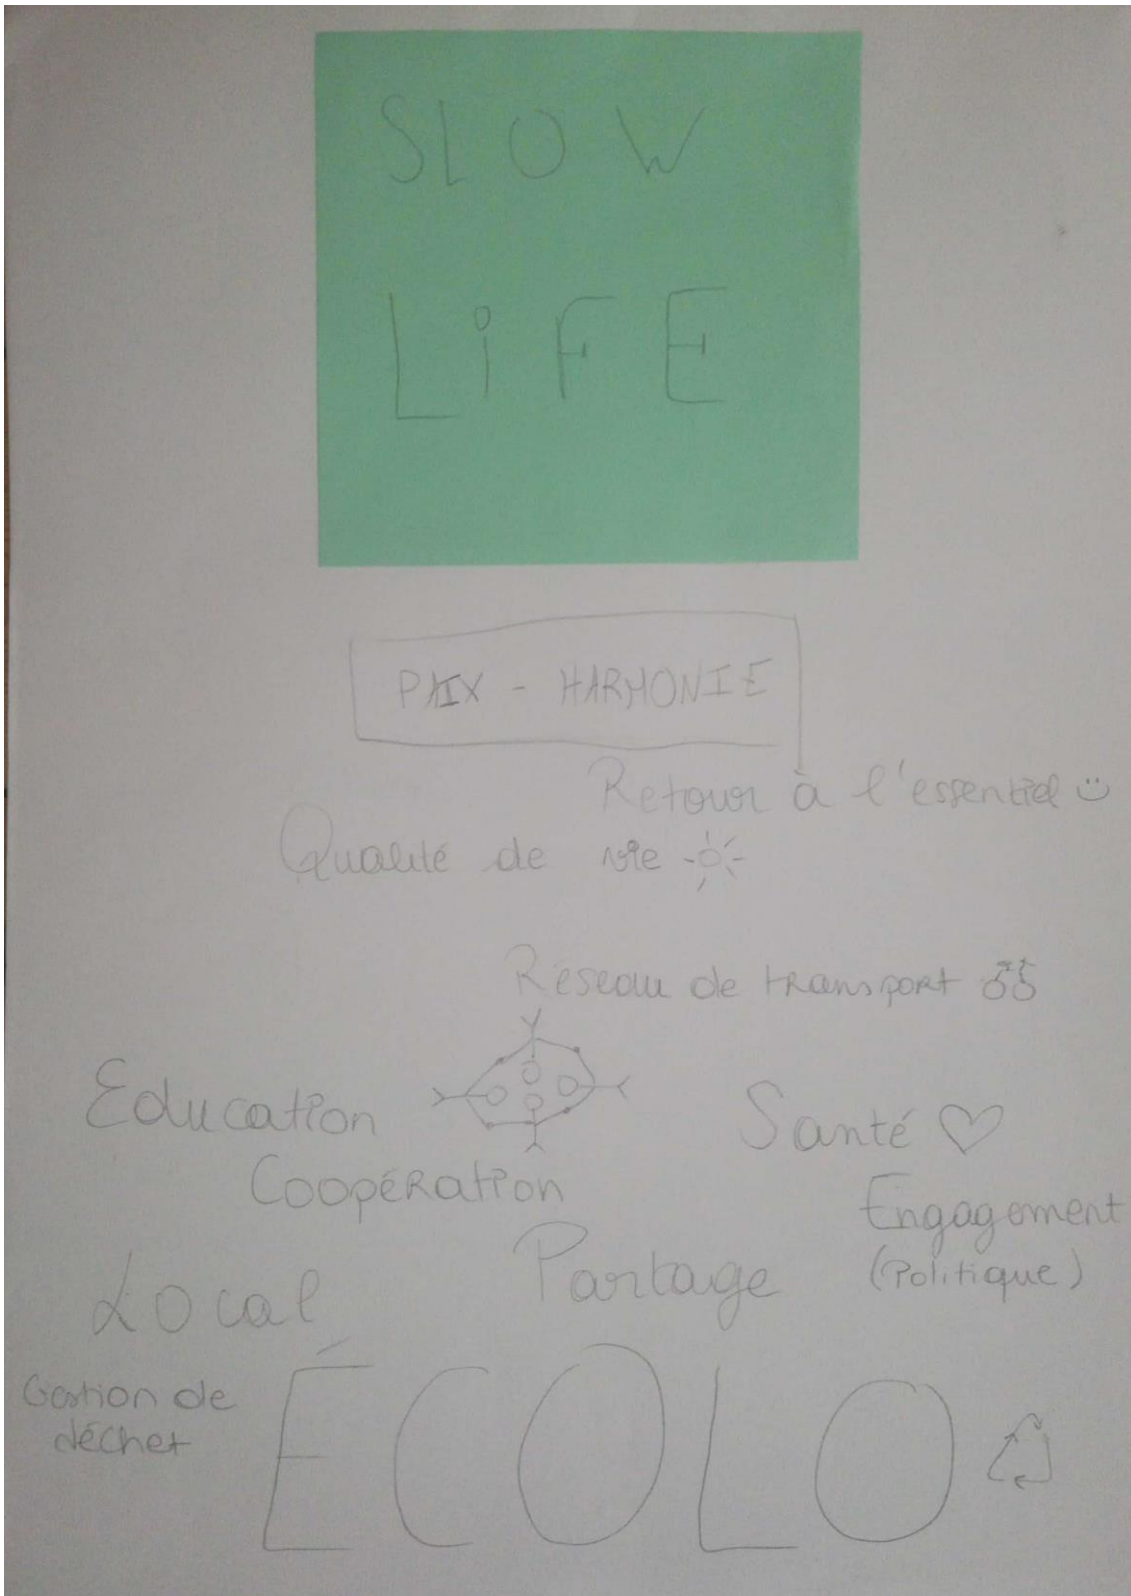 SLOW
LiFE
PAIX - HARMONIE
Retour à l'essentiel
Qualité de vie
Réseau de transport
Education
Santé
Coopération
Engagement
(Politique)
Partage
Local
Gestion de
déchet
ÉCOLO